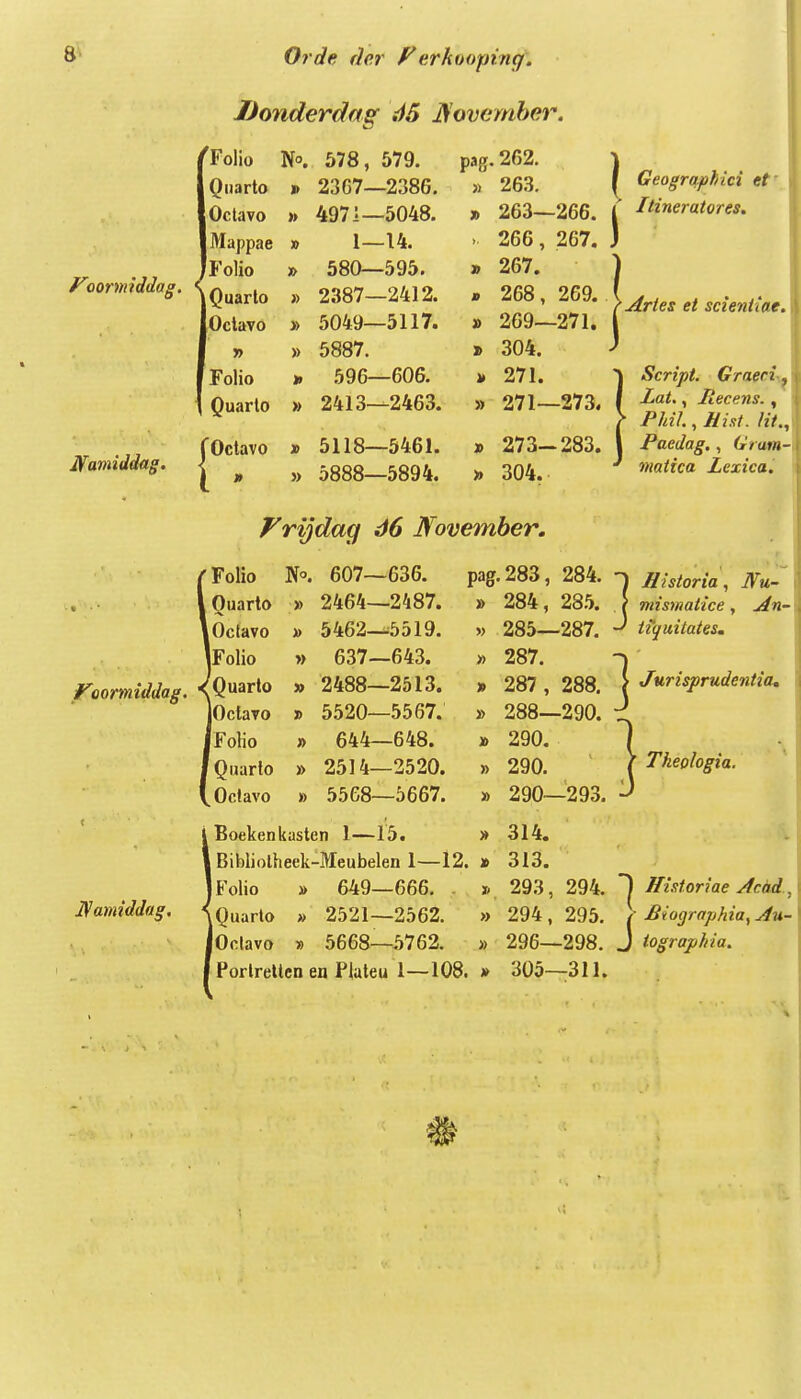 8 Orde der Verkooping.
Donderdag 15 November.
Voormiddag.
Folio No. 578, 579. pag. 262.
Quarto » 2367—2386. » 263.
Octavo » 4971—5048. » 263—266.
Mappae » 1—14. » 266, 267.
Geographici et
Itineratores.
Folio » 580—595. » 267.
Quarto » 2387—2412. » 268, 269.
Octavo » 5049—5117. » 269—271.
» » 5887. » 304.
Artes et scientiae.
Folio » 596—606. » 271.
Quarto » 2413—2463. » 271—273.
Namiddag.
Octavo » 5118—5461. » 273—283.
» » 5888—5894. » 304.
Script. Graeci,
Lat., Recens.,
Phil., Hist. lit.,
Paedag., Gram-
matica Lexica.
Vrijdag 16 November.
Voormiddag.
Folio No. 607—636. pag. 283, 284.
Quarto » 2464—2487. » 284, 285.
Octavo » 5462—5519. » 285—287.
Historia, Nu-
mismatice, An-
tiquitates.
Folio » 637—643. » 287.
Quarto » 2488—2513. » 287, 288.
Octavo » 5520—5567. » 288—290.
Jurisprudentia.
Folio » 644—648. » 290.
Quarto » 2514—2520. » 290.
Octavo » 5568—5667. » 290—293.
Theologia.
Namiddag.
Boekenkasten 1—15. » 314.
Bibliotheek-Meubelen 1—12. » 313.
Folio » 649—666. » 293, 294.
Quarto » 2521—2562. » 294, 295.
Octavo » 5668—5762. » 296—298.
Historiae Acad,
Biographia, Au-
tographia.
Portretten en Plateu 1—108. » 305—311.